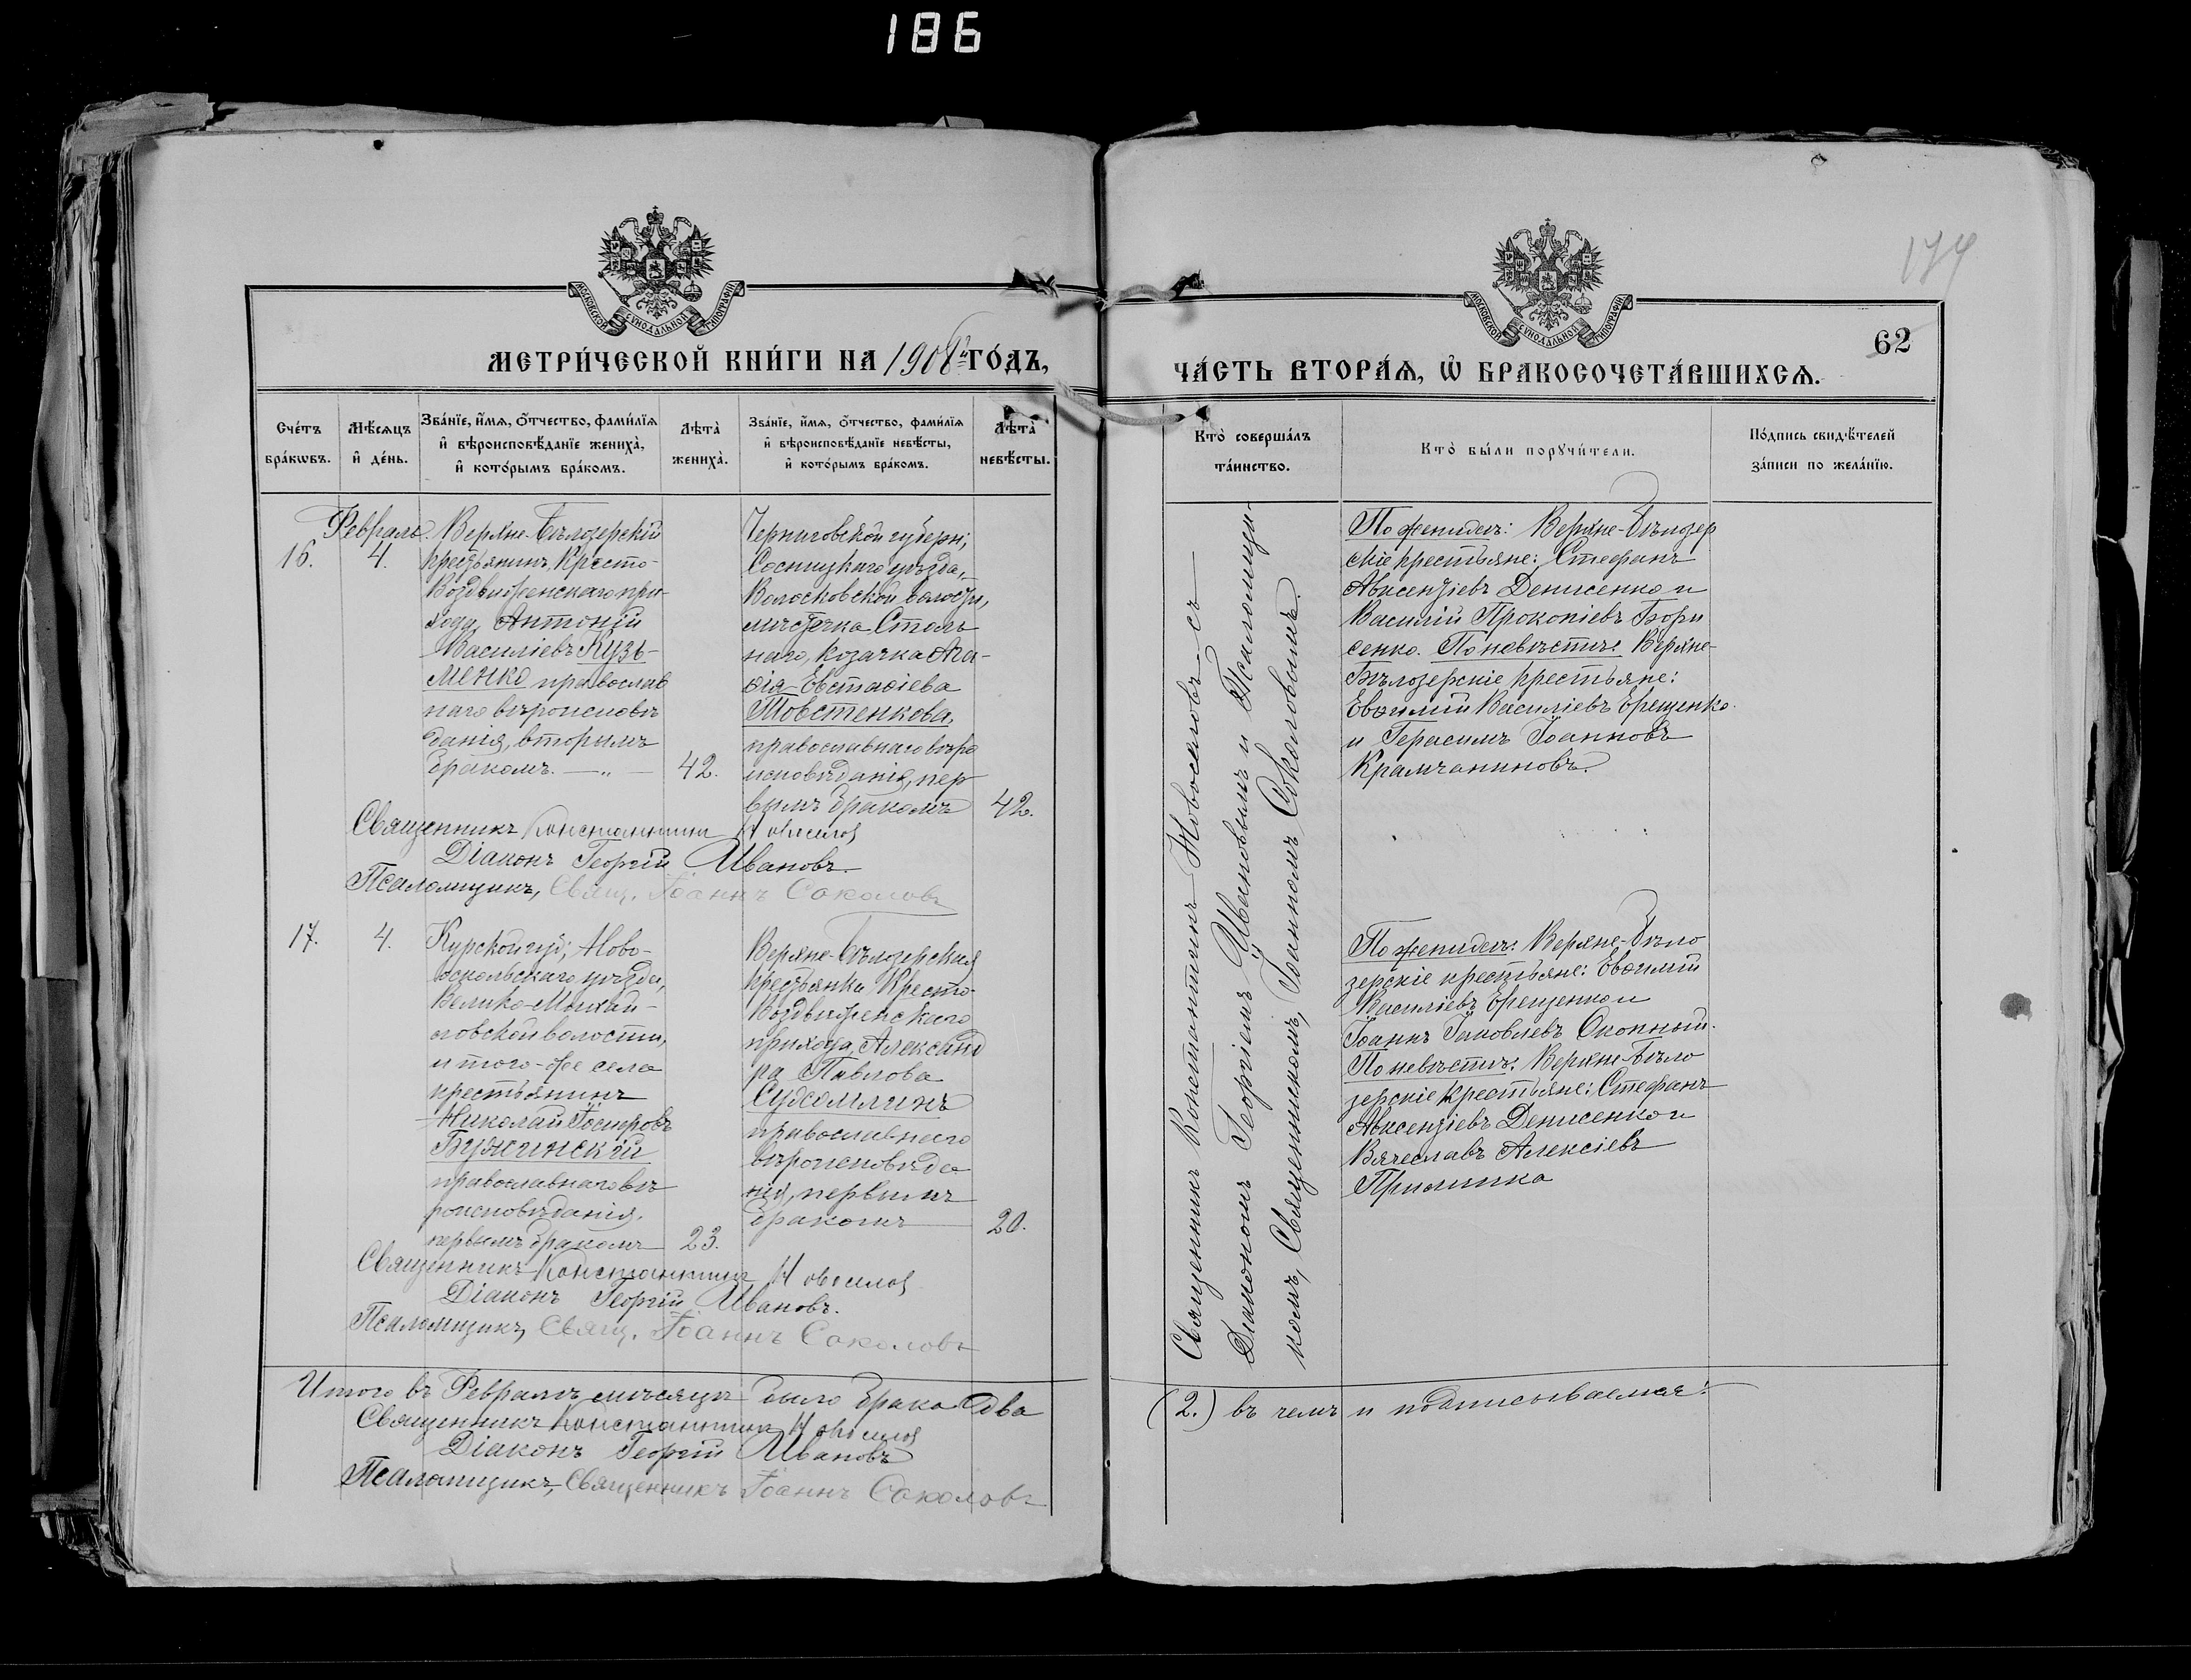 186
МОСКОВСКОЙ СѴНОДАЛЬНОЙ ТИПОГРАФІИ
МЕТРИ́ЧЕСКОЙ КНИ́ГИ НА 1908й ГО́ДЪ,
Сче́тъ бра́кѡвъ.
Мѣ́сяцъ и҆ де́нь.
Зва́нїе, и҆́мя, о҆́тчество, фами́лїя
и҆ вѣроисповѣ́данїе жениха̀,
и҆ кото́рымъ бра́комъ.
Лѣта̀ жениха̀.
Зва́нїе, и҆́мя, о҆́тчество, фами́лїя
и҆ вѣроисповѣ́данїе невѣ́сты,
и҆ кото́рымъ бра́комъ.
Лѣта̀ невѣ́сты.
16.
Февраль.
4.
Верхне-Бѣлозерскій
крестьянинъ, Кресто-
Воздвиженскаго при-
хода, Антоній
Василіевъ Кузь-
менко православ
наго вѣроисповѣ
данія, вторымъ
бракомъ. — „ —
42.
Черниговской губерн;
Сосницкаго уѣзда,
Волосковской волости,
мѣстечка Столь
наго, козачка Ага-
ѳія Евстаѳіева
Товстенкова,
православнаго вѣро
исповѣданія, пер
вымъ бракомъ
42.
Священникъ Константинъ Новосилов
Діаконъ Георгій Ивановъ.
Псаломщикъ, Свящ. Іоаннъ Соколовъ
17.
4.
Курской губ; Ново-
оскольскаго уѣзда,
Велико-Михай-
ловской волости,
и того-же села
крестьянинъ
Николай Петровъ
Бужинскій
православнаго вѣ
роисповѣданія.
первымъ бракомъ
23.
Верхне-Бѣлозерская
крестьянка Кресто-
Воздвиженскаго
прихода, Александ
ра Павлова
православнаго
вѣроисповѣда
нія, первымъ
бракомъ
20.
Священникъ Константинъ Новосилов
Діаконъ Георгій Ивановъ.
Псаломщикъ, Свящ. Іоаннъ Соколовъ
Итого въ Февралѣ мѣсяцѣ было брака два
Священникъ Константинъ Новосилов
Діаконъ Георгій Ивановъ
Псаломщикъ, Священникъ Іоаннъ Соколовъ
174
МОСКОВСКОЙ СѴНОДАЛЬНОЙ ТИПОГРАФІИ
62
ЧА́СТЬ ВТОРА́Я, Ѡ҆ БРАКОСОЧЕТА́ВШИХСЯ.
Кто̀ соверша́лъ
та́инство.
Кто̀ бы́ли порꙋчи́тели.
По́дпись свидѣ́телей
за́писи по жела́нїю.
Священникъ Константинъ Новосиловъ съ
Діакономъ Георгіемъ Ивановымъ и Псаломщи-
комъ, Священникомъ, Іоанномъ Соколовымъ.
По женихѣ: Верхне-Бѣлозер
скіе крестьяне: Стефанъ
Авксентіевъ Денисенко и
Василій Прокопіевъ Бори
сенко. По невѣстѣ: Верхне-
Бѣлозерскіе крестьяне:
Евѳимій Василіевъ Ерещенко
и Герасимъ Іоанновъ
Крамчаниновъ.
По женихѣ: Верхне-Бѣло
зерскіе крестьяне: Евѳимій
Василіевъ Ерещенко и
Іоаннъ Іаковлевъ Окопный.
По невѣстѣ: Верхне-Бѣло
зерскіе крестьяне: Стефанъ
Авксентіевъ Денисенко и
Вячеславъ Алексіевъ
Примака
(2.) въ чемъ и подписываемся: